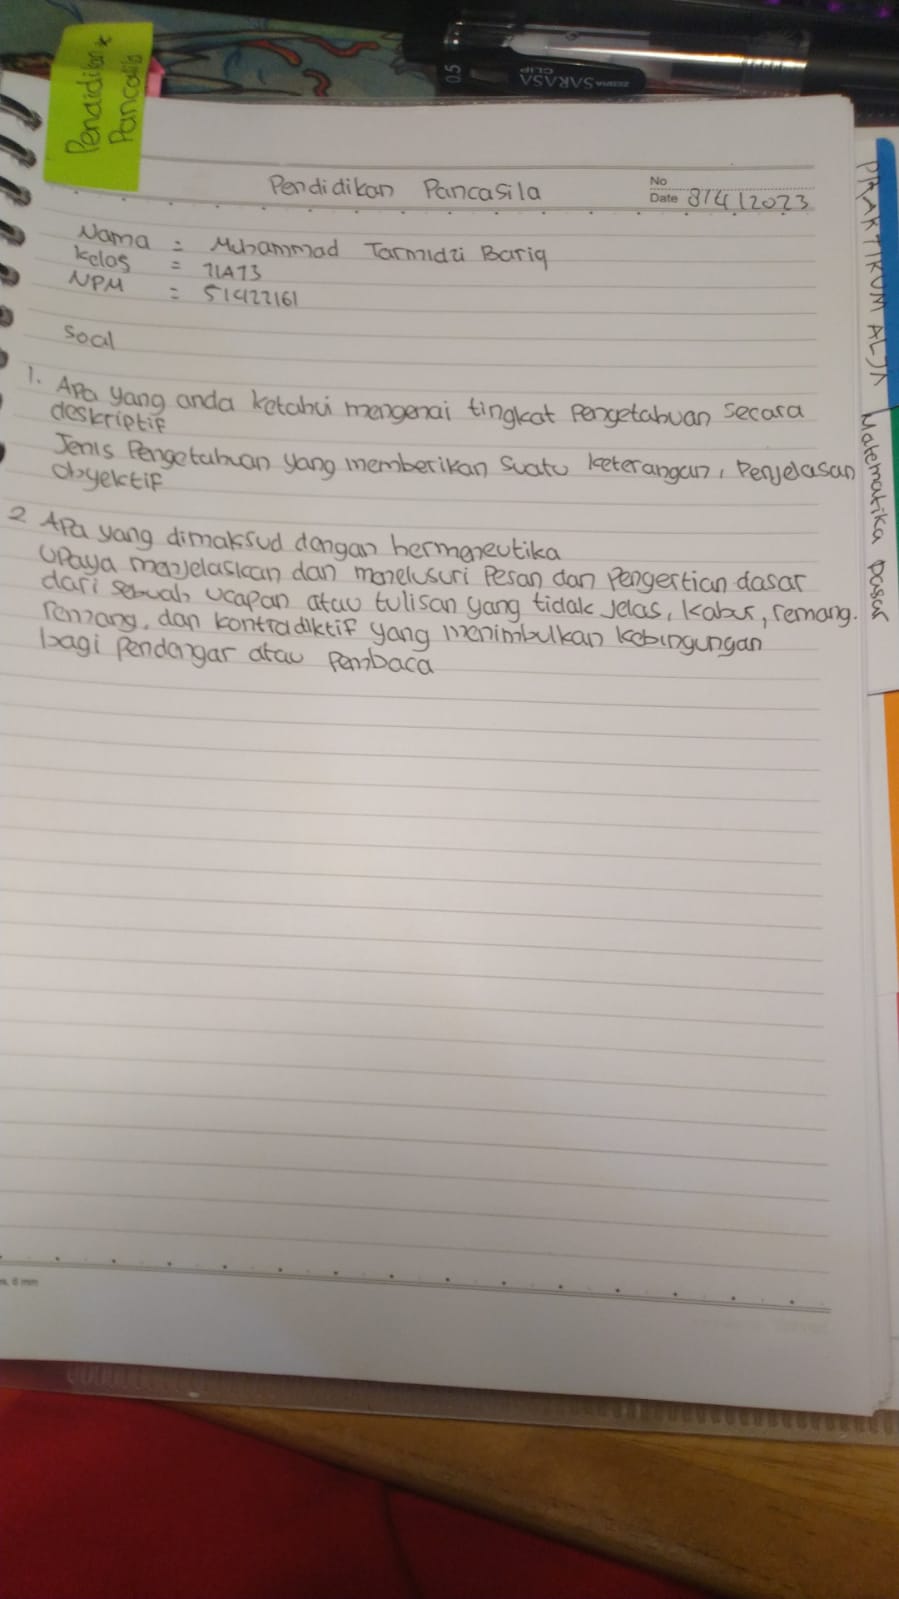 Pendidikan
Pancasila
0.5
ZEBRA SARASA
CLIP
Pendidikan Pancasila
No
Date 3/4/2023
Nama = Muhammad Tarmidzi Bariq
Kelas = 1IA13
NPM = 51422161
Soal
1. Apa yang anda ketahui mengenai tingkat Pengetahuan Secara
deskriptif
Jenis Pengetahuan yang memberikan Suatu keterangan, Penjelasan
Obyektif
2 Apa yang dimaksud dengan hermeneutika
Upaya menjelaskan dan menelusuri Pesan dan Pengertian dasar
dari sebuah ucapan atau tulisan yang tidak jelas, kabur, remang.
remang, dan kontradiktif yang menimbulkan kebingungan
bagi Pendengar atau Pembaca
PRAKTIKUM ALJX
Matematika Dasar
6 mm